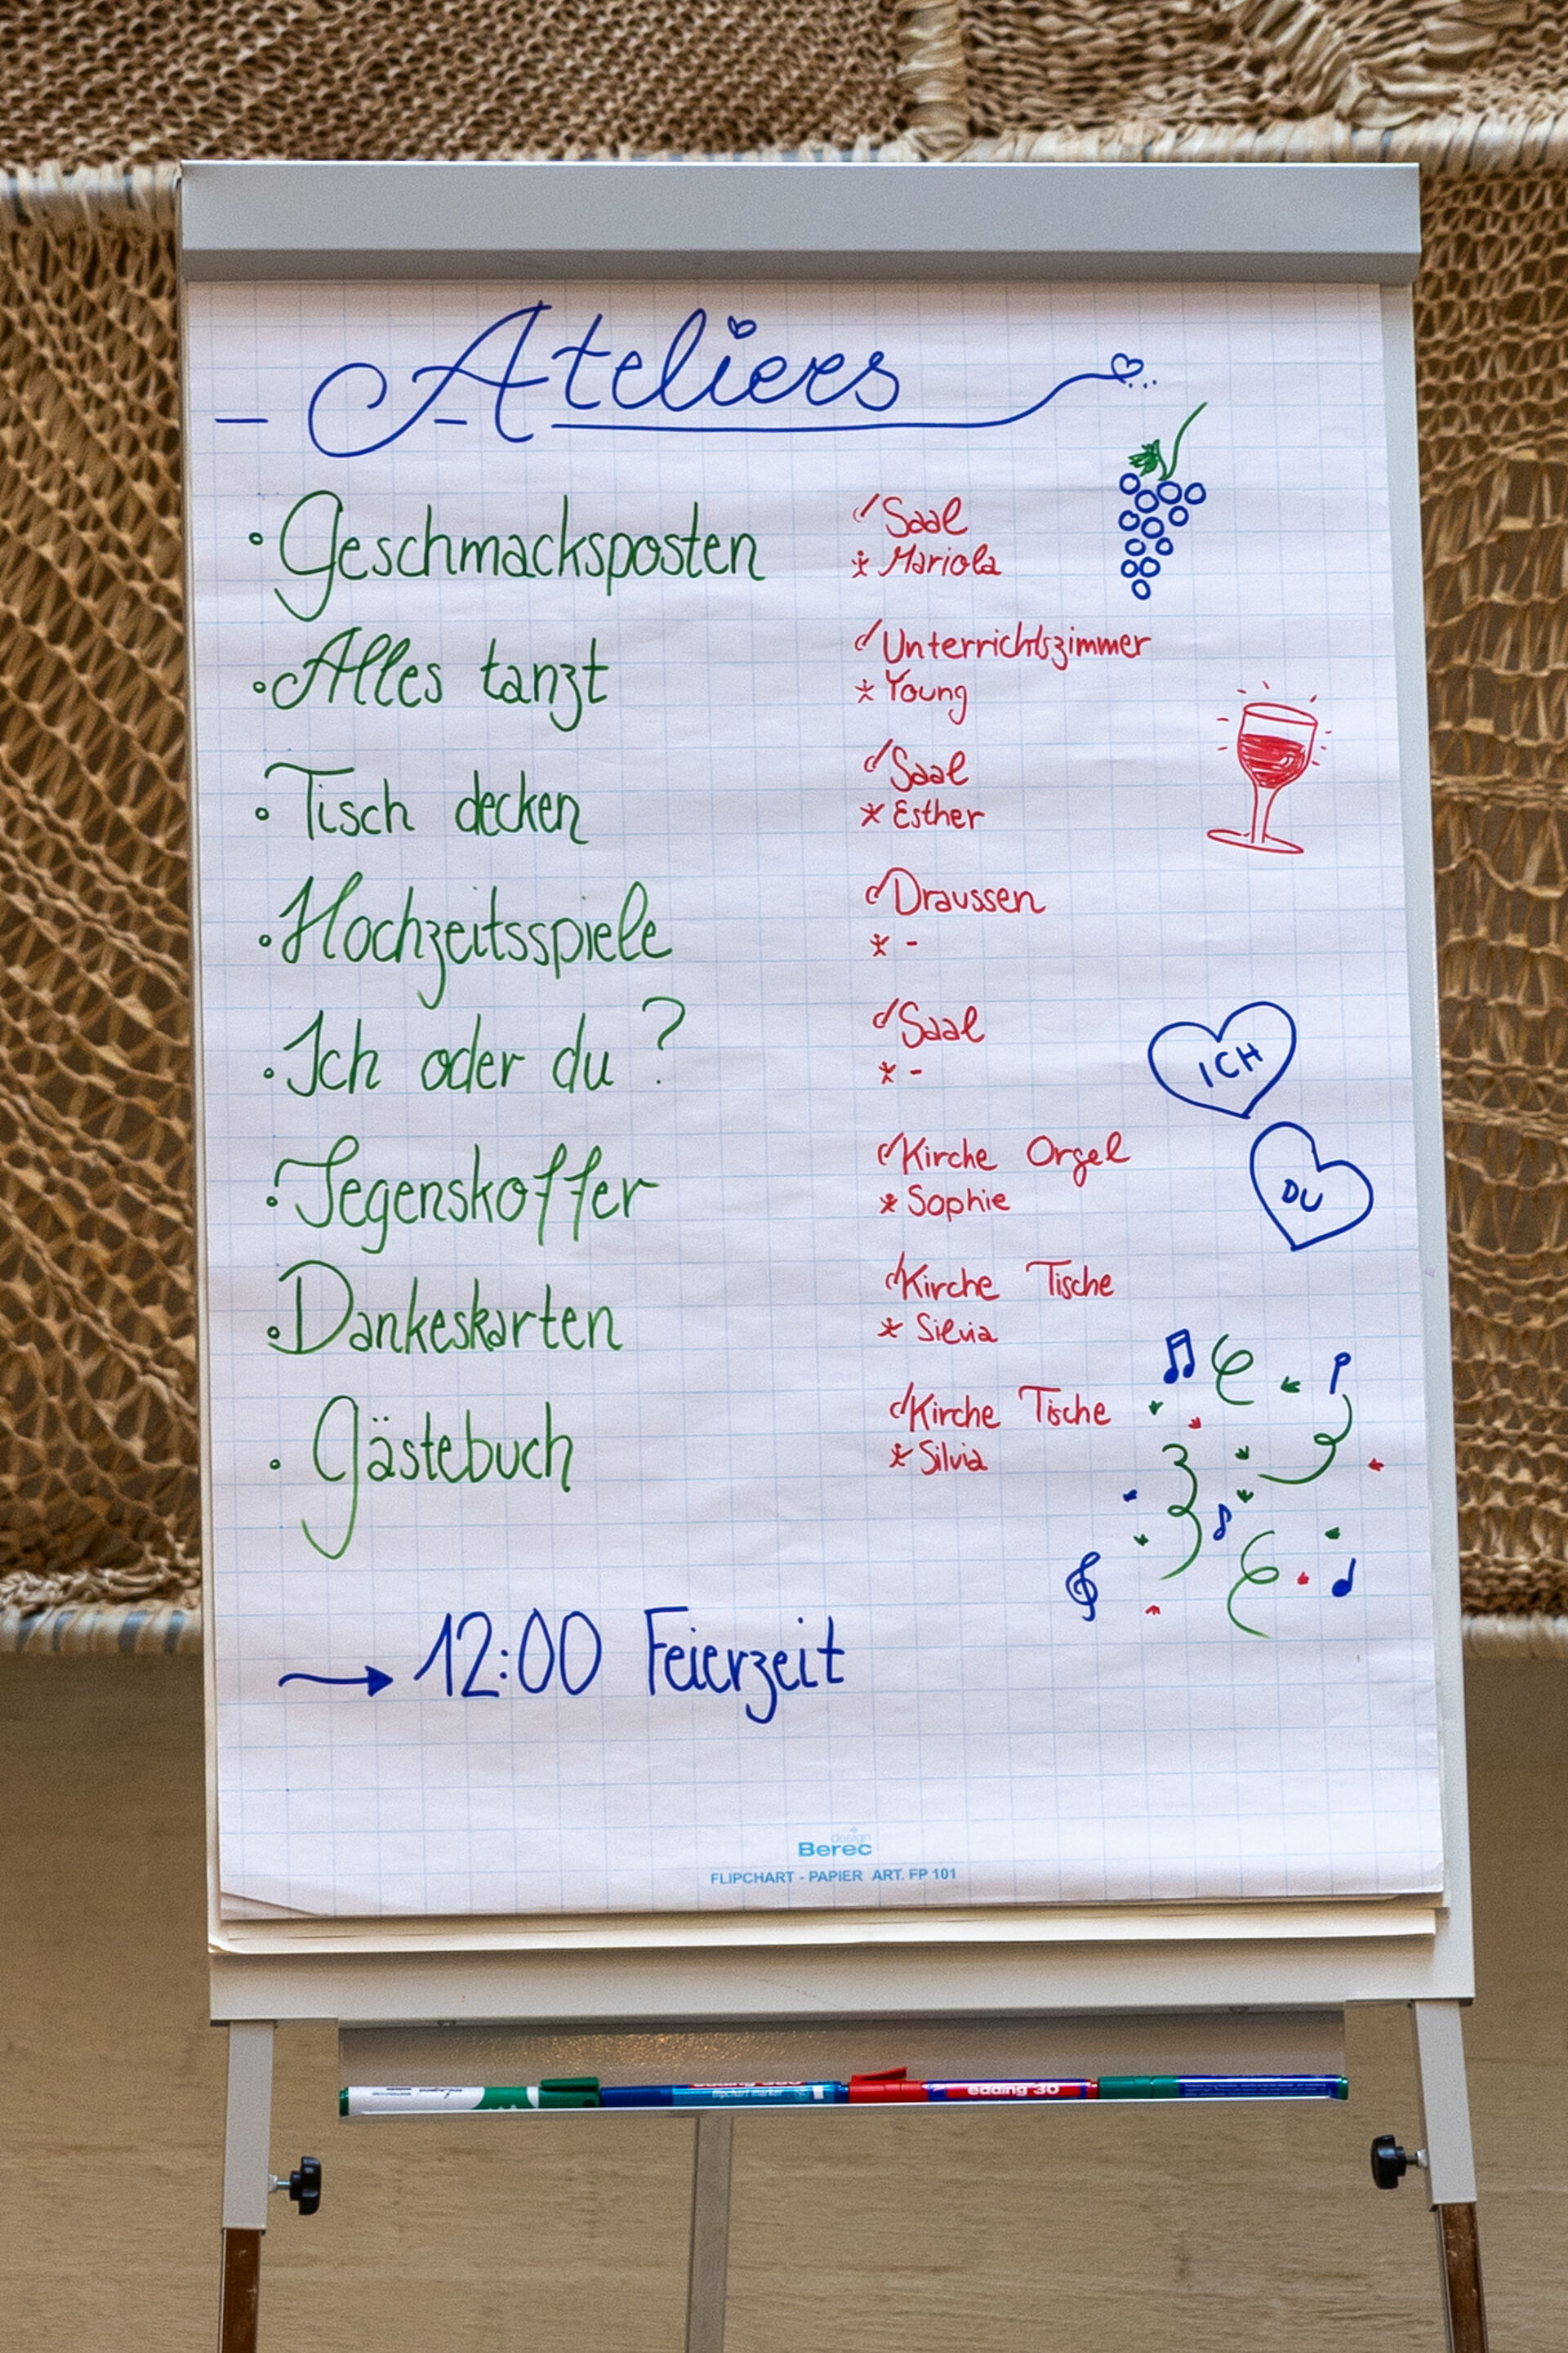 Ateliers
Geschmacksposten
Saal
Mariola
Alles tanzt
Unterrichtszimmer
Young
Tisch decken
Saal
Esther
Hochzeitsspiele
Draussen
-
Ich oder du?
Saal
-
ICH
Segenskoffer
Kirche Orgel
Sophie
DU
Dankeskarten
Kirche Tische
Silvia
Gästebuch
Kirche Tische
Silvia
→ 12:00 Feierzeit
design
Berec
FLIPCHART - PAPIER ART. FP 101
flipchart marker
edding 30